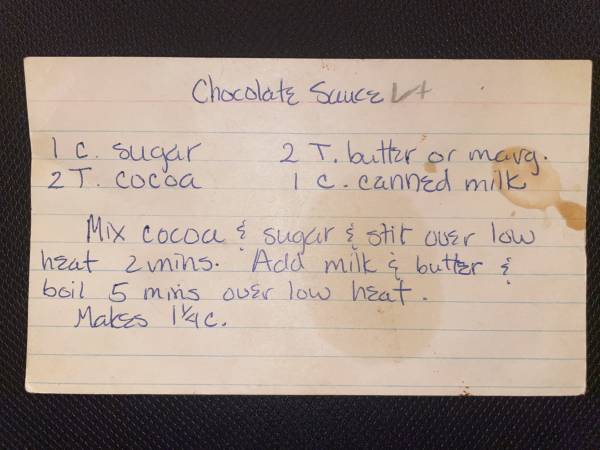 Chocolate Sauce ✓+
1 C. sugar 2 T. butter or marg.
2 T. cocoa 1 C. canned milk
Mix cocoa & sugar & stir over low
heat 2 mins. Add milk & butter &
boil 5 mins over low heat.
Makes 1¼ c.